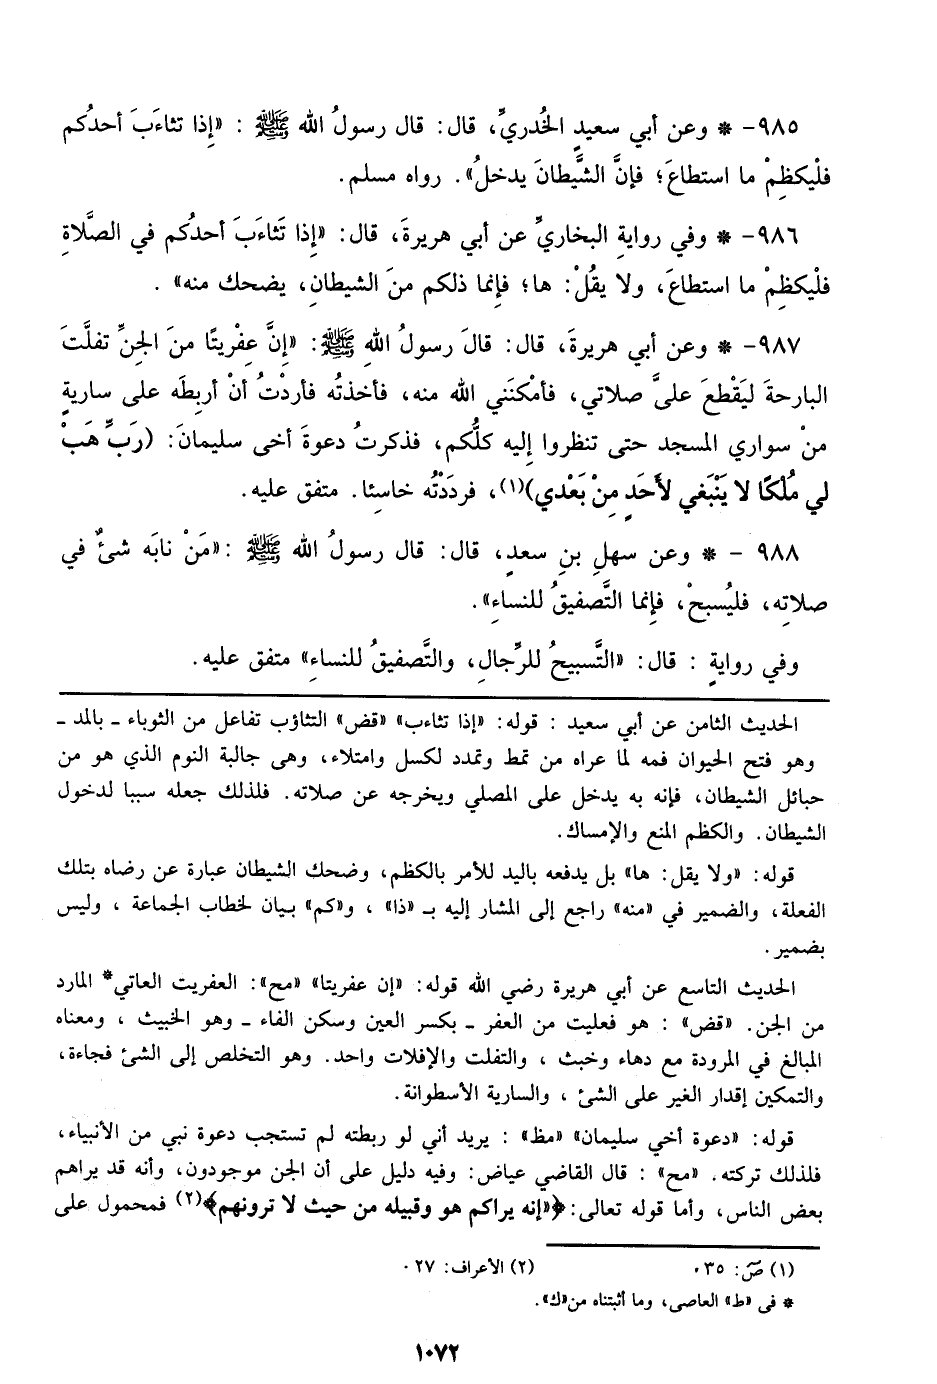 ٩٨٥- * وعن أبي سعيدٍ الخُدريِّ، قال: قال رسولُ الله ﷺ : «إِذا تثاءَبَ أحدُكم
فلْيكظِمْ ما استطاعَ؛ فإنَّ الشَّيطانَ يدخلُ». رواه مسلم.
٩٨٦- * وفي روايةِ البخاريِّ عن أبي هريرةَ، قال: «إِذا تَثاءَبَ أحدُكم في الصَّلاةِ
فلْيكظِمْ ما استطاعَ، ولا يقُلْ: ها؛ فإِنما ذلكم منَ الشيطانِ، يضحك منه» .
٩٨٧- * وعن أبي هريرةَ، قال: قالَ رسولُ اللهِ ﷺ: «إِنَّ عِفْريتًا منَ الجنِّ تفلَّتَ
البارحةَ ليَقْطعَ علىَّ صلاتي، فأمْكنَني الله منه، فأخذتُه فأردْتُ أنْ أربِطَه على ساريةٍ
منْ سواري المسجد حتى تنظروا إِليه كلُّكم، فذكرتُ دعوةَ أخى سليمانَ: (رَبِّ هَبْ
لي مُلْكًا لا يَنْبَغي لأَحَدٍ مِنْ بَعْدي)(١)، فردَدْتُه خاسئا. متفق عليه.
٩٨٨ - * وعن سهلِ بنِ سعدٍ، قال: قال رسولُ الله ﷺ :«مَنْ نابَه شئٌ في
صلاتِه، فليُسبحْ، فإِنما التَّصفيقُ للنساءِ».
وفي روايةٍ : قال: «التَّسبيحُ للرِّجالِ، والتَّصفيقُ للنساءِ» متفق عليه.
الحديث الثامن عن أبي سعيد : قوله: «إذا تثاءب» «قض» التثاؤب تفاعل من الثوباء ـ بالمد ـ
وهو فتح الحيوان فمه لما عراه من تمط وتمدد لكسل وامتلاء، وهى جالبة النوم الذي هو من
حبائل الشيطان، فإنه به يدخل على المصلي ويخرجه عن صلاته. فلذلك جعله سببا لدخول
الشيطان. والكظم المنع والإمساك.
قوله: «ولا يقل: ها» بل يدفعه باليد للأمر بالكظم، وضحك الشيطان عبارة عن رضاه بتلك
الفعلة، والضمير في «منه» راجع إلى المشار إليه بـ «ذا» ، و«كم» بيان لخطاب الجماعة ، وليس
بضمير.
الحديث التاسع عن أبي هريرة رضي الله قوله: «إن عفريتا» «مح»: العفريت العاتي* المارد
من الجن. «قض» : هو فعليت من العفر ـ بكسر العين وسكن الفاء ـ وهو الخبيث ، ومعناه
المبالغ في المرودة مع دهاء وخبث ، والتفلت والإفلات واحد. وهو التخلص إلى الشئ فجاءة،
والتمكين إقدار الغير على الشئ ، والسارية الأسطوانة.
قوله: «دعوة أخي سليمان» «مظ» : يريد أني لو ربطته لم تستجب دعوة نبي من الأنبياء،
فلذلك تركته. «مح» : قال القاضي عياض: وفيه دليل على أن الجن موجودون، وأنه قد يراهم
بعض الناس، وأما قوله تعالى: ﴿«إنه يراكم هو وقبيله من حيث لا ترونهم﴾(٢) فمحمول على
(١) صَ: ٣٥. (٢) الأعراف: ٢٧.
* فى «ط» العاصى، وما أثبتناه من«ك».
١٠٧٢